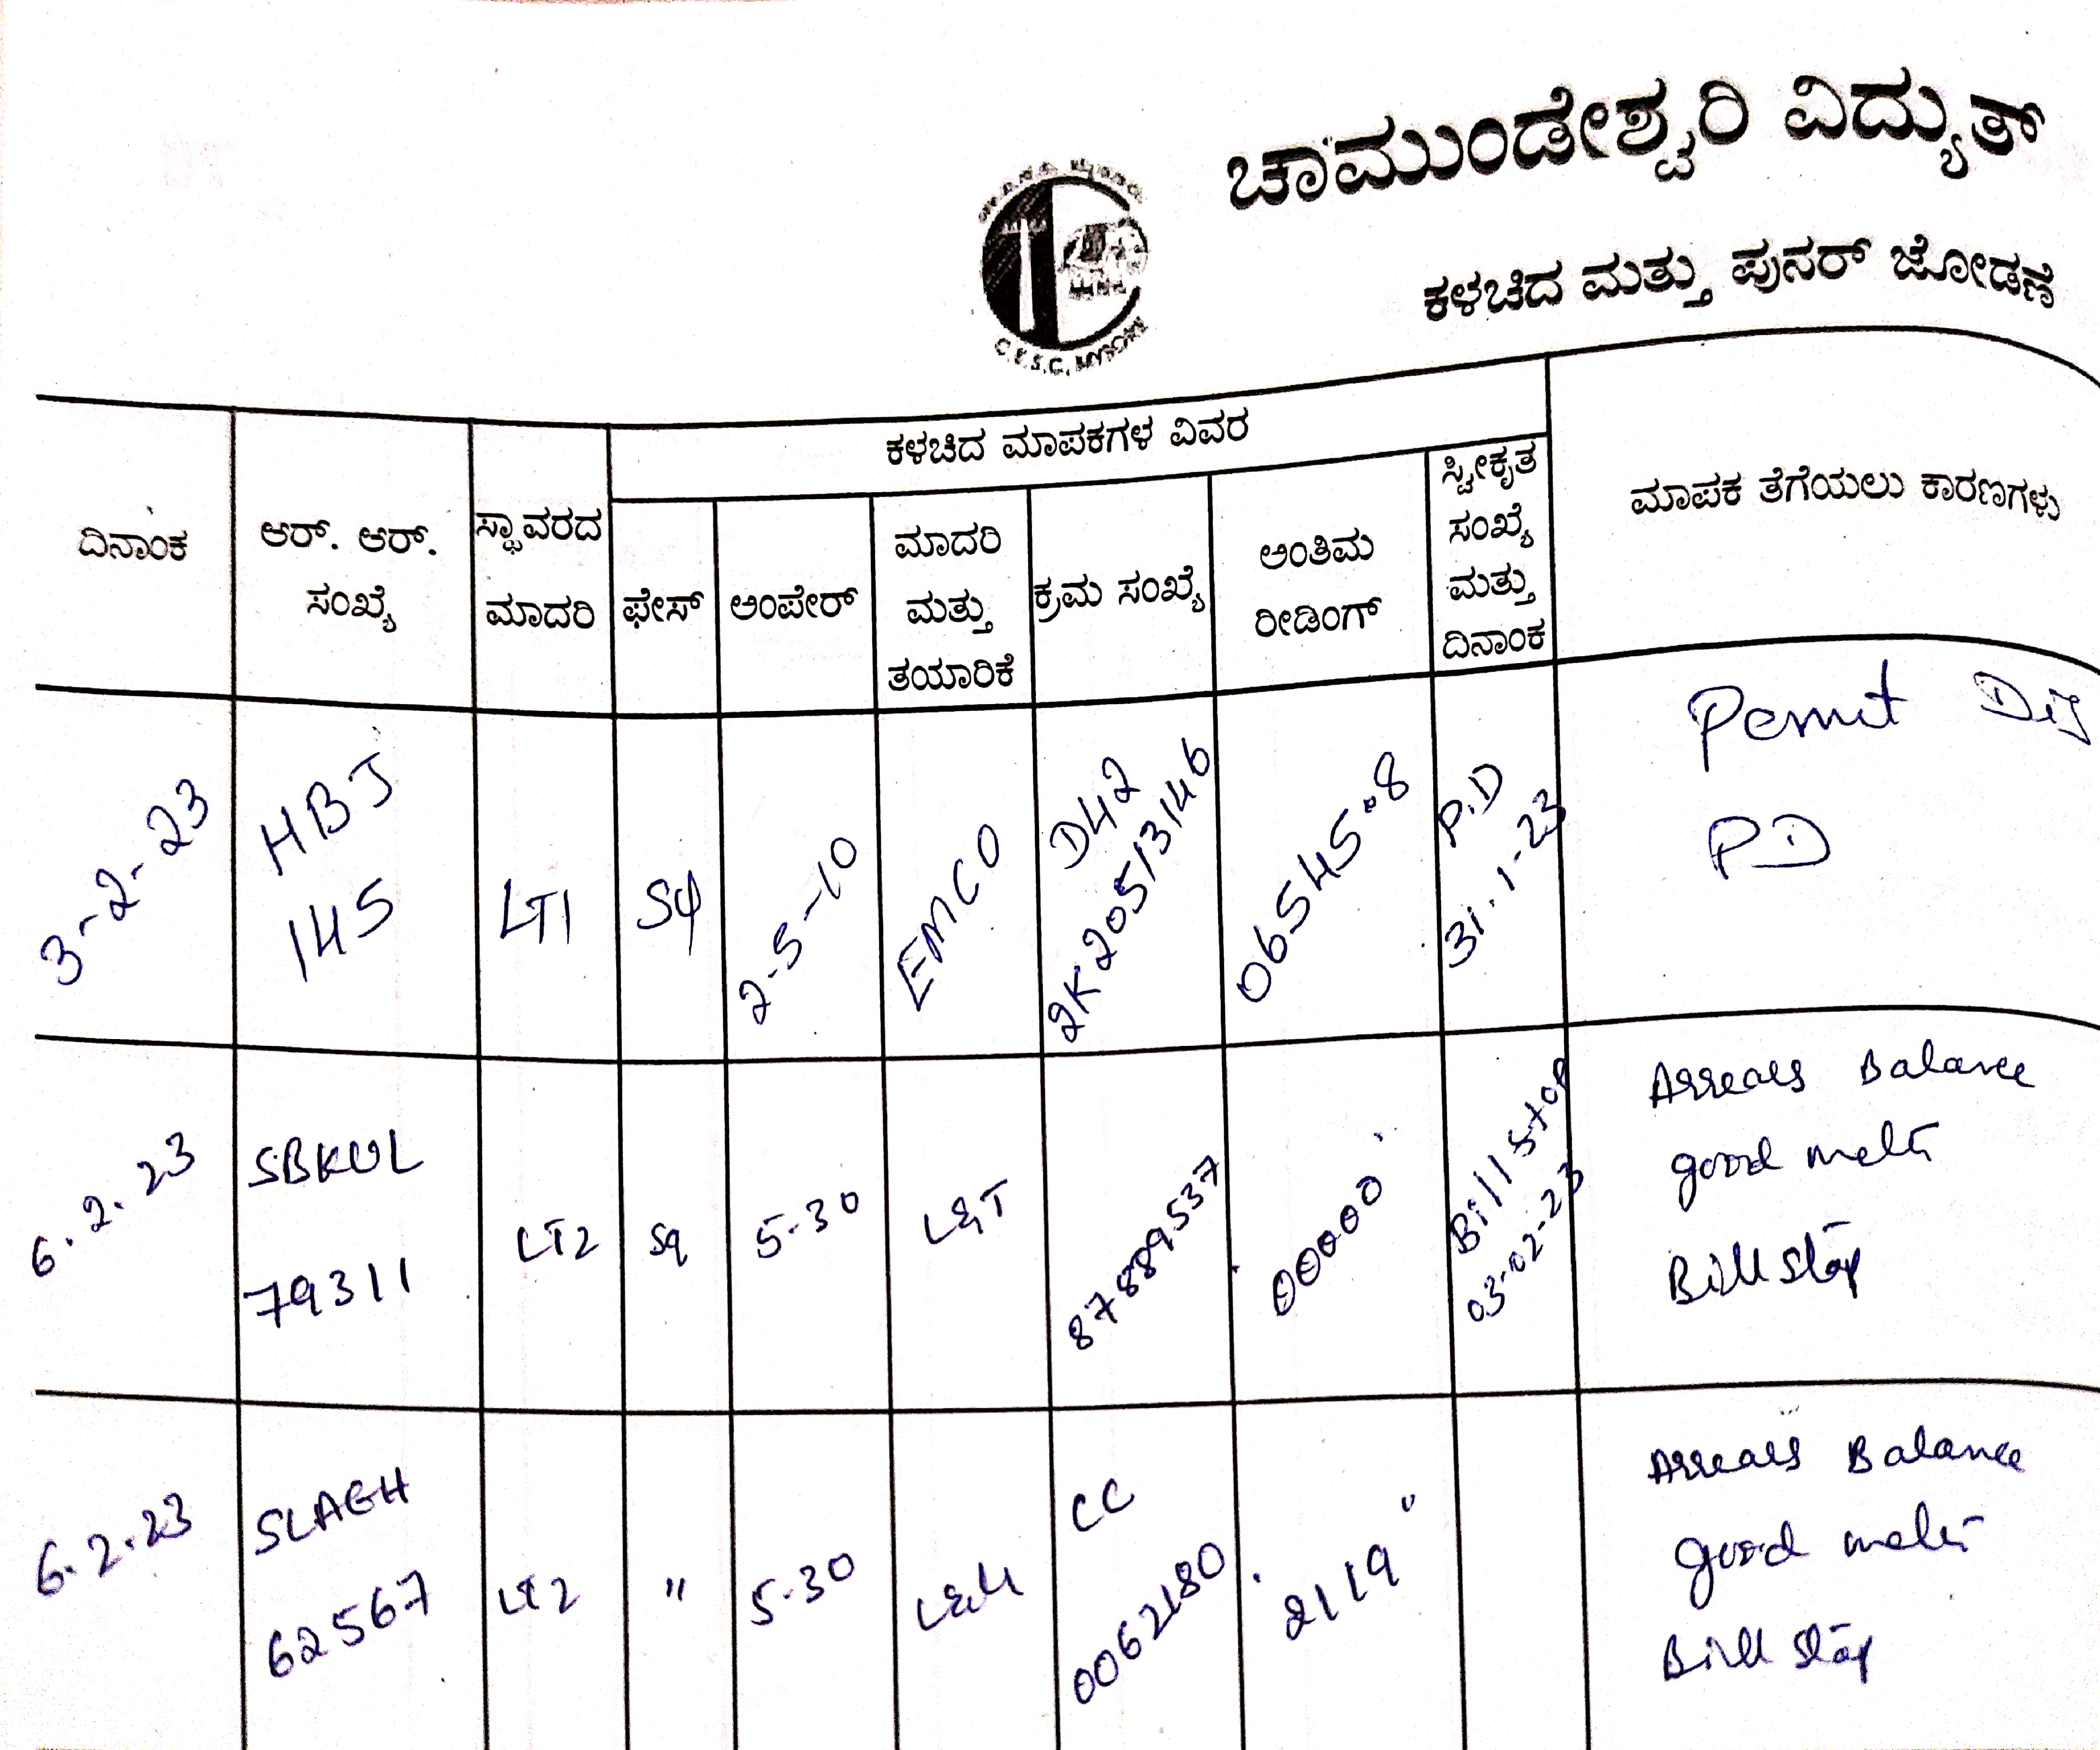 ಚಾಮುಂಡೇಶ್ವರಿ ವಿದ್ಯುತ್
ಕಳಚಿದ ಮತ್ತು ಪುನರ್ ಜೋಡಣೆ
C.E.S.C. MYSORE
ಕಳಚಿದ ಮಾಪಕಗಳ ವಿವರ
ದಿನಾಂಕ
ಆರ್. ಆರ್.
ಸಂಖ್ಯೆ
ಸ್ಥಾವರದ
ಮಾದರಿ
ಫೇಸ್
ಅಂಪೇರ್
ಮಾದರಿ
ಮತ್ತು
ತಯಾರಿಕೆ
ಕ್ರಮ ಸಂಖ್ಯೆ
ಅಂತಿಮ
ರೀಡಿಂಗ್
ಸ್ವೀಕೃತ
ಸಂಖ್ಯೆ
ಮತ್ತು
ದಿನಾಂಕ
ಮಾಪಕ ತೆಗೆಯಲು ಕಾರಣಗಳು
3-2-23
HBJ
145
LT1
Sφ
2-5-10
EMCO
D42
2K20513146
06545.8
P.D
31.1-23
PD
6.2.23
SBKUL
79311
LT2
Sq
5-30
L&T
87889537
00000
Bill stop
03-02-23
Arrears Balance
good meter
Bill stop
6.2.23
SLAGH
62567
LT2
"
5-30
CC
0062180
2119
Arrears Balance
good meter
Bill stop